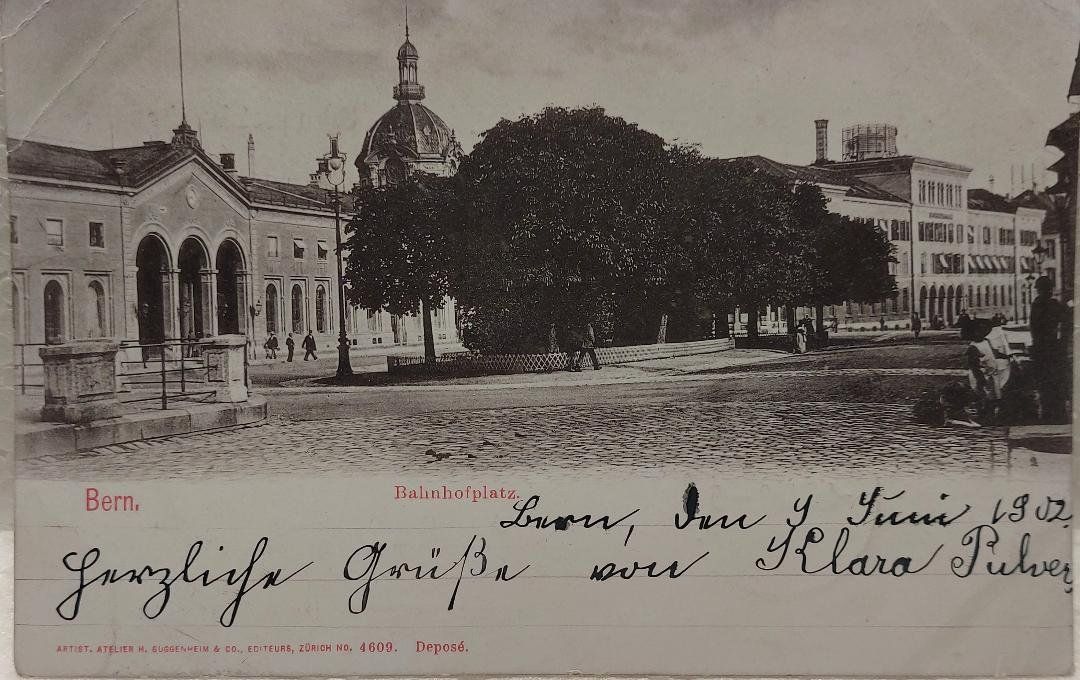 Bern.
Bahnhofplatz.
Bern, den 9 Juni 1902
Herzliche Grüße von Klara Pulver
ARTIST. ATELIER H. GUGGENHEIM & CO., EDITEURS, ZÜRICH NO. 4609. Deposé.